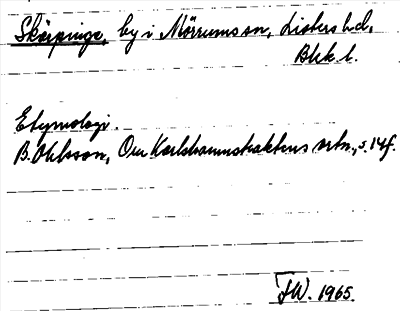 Skörpinge, by i Mörrums sn, Listers hd,
Blek. l.
Etymologi.
B. Ohlsson, Om Karlshamnstraktens ortn., s. 14f.
FW. 1965